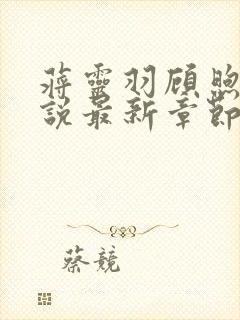 蔣靈羽顧煦
說最新章節
蔡競